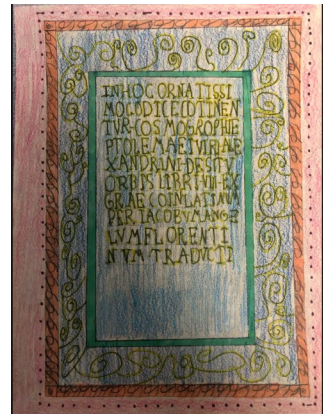 INHOC ORNATISSI
MOCODICECOTINEN
TVR·COSMOGROPHIE
PTOLEMAEIVIRIALE
XANDRINI·DESITV
ORBIS LIBRIVIII·EX
GRAECOINLATINVM
PERIACOBVMANGE
LVMFLORENTI
NVMTRADVCTI